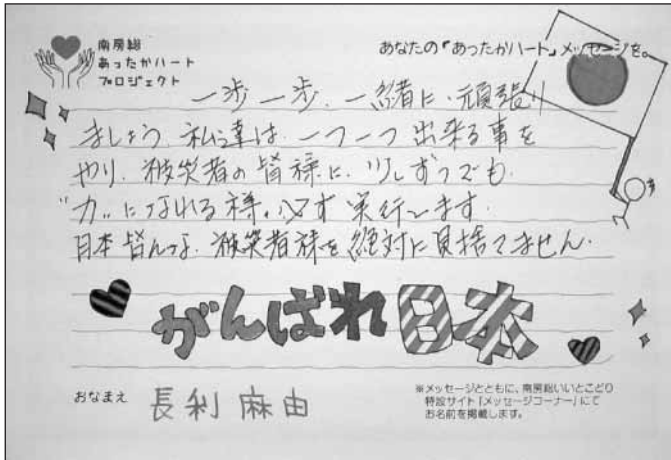 南房総
あったかハート
プロジェクト
あなたの「あったかハート」メッセージを。
一歩一歩、一緒に、頑張り
ましょう。私達は、一つ一つ出来る事を
やり、被災者の皆様に、少しずつでも、
"力"になれる様。必ず実行します。
日本皆んな、被災者様を絶対に見捨てません。
がんばれ日本
おなまえ 長利麻由
※メッセージとともに、南房総いいとこどり
特設サイト「メッセージコーナー」にて
お名前を掲載します。